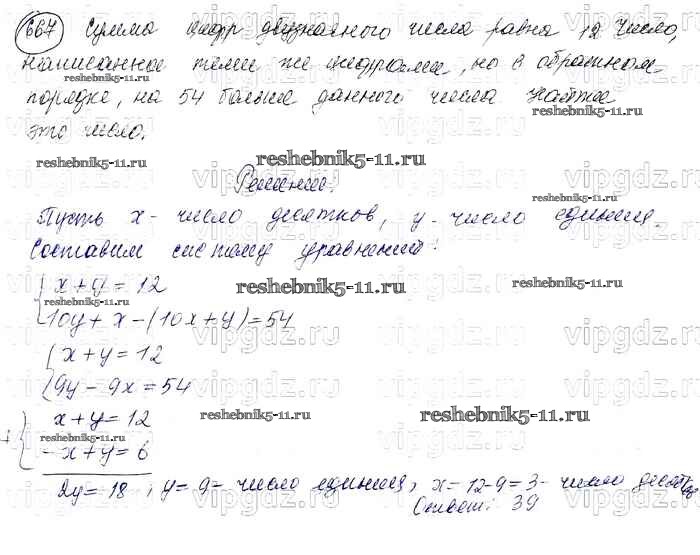 667 Сумма цифр двузначного числа равна 12 Число,
написанное теми же цифрами, но в обратном
порядке, на 54 больше данного числа Найти
это число.
Решение.
Пусть x - число десятков, y - число единиц.
Составим систему уравнений:
x + y = 12
10y + x - (10x + y) = 54
x + y = 12
9y - 9x = 54
+ x + y = 12
- x + y = 6
2y = 18, y = 9 - число единиц, x = 12 - 9 = 3 - число десятков
Ответ: 39
reshebnik5-11.ru
vipgdz.ru